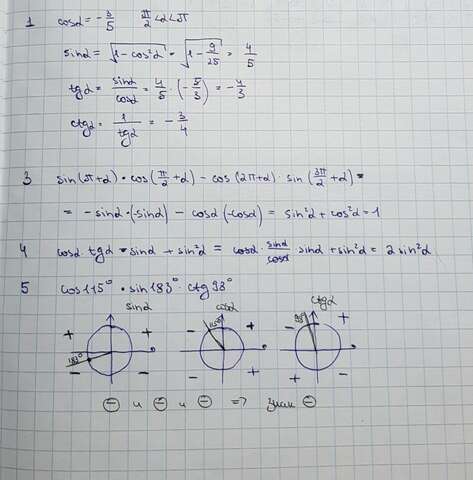 1 cosα = -3/5 π/2 < α < π
sinα = √(1 - cos²α) = √(1 - 9/25) = 4/5
tgα = sinα/cosα = 4/5 · (-5/3) = -4/3
ctgα = 1/tgα = -3/4
3 sin(π+α) · cos(π/2 + α) - cos(2π+α) · sin(3π/2 + α) =
= -sinα · (-sinα) - cosα(-cosα) = sin²α + cos²α = 1
4 cosα · tgα · sinα + sin²α = cosα · sinα/cosα sinα + sin²α = 2 sin²α
5 cos115° · sin183° · ctg98°
sinα cosα ctgα
+ + - + - +
183° 115° 98°
- - - + + -
⊖ и ⊖ и ⊖ => знак ⊖